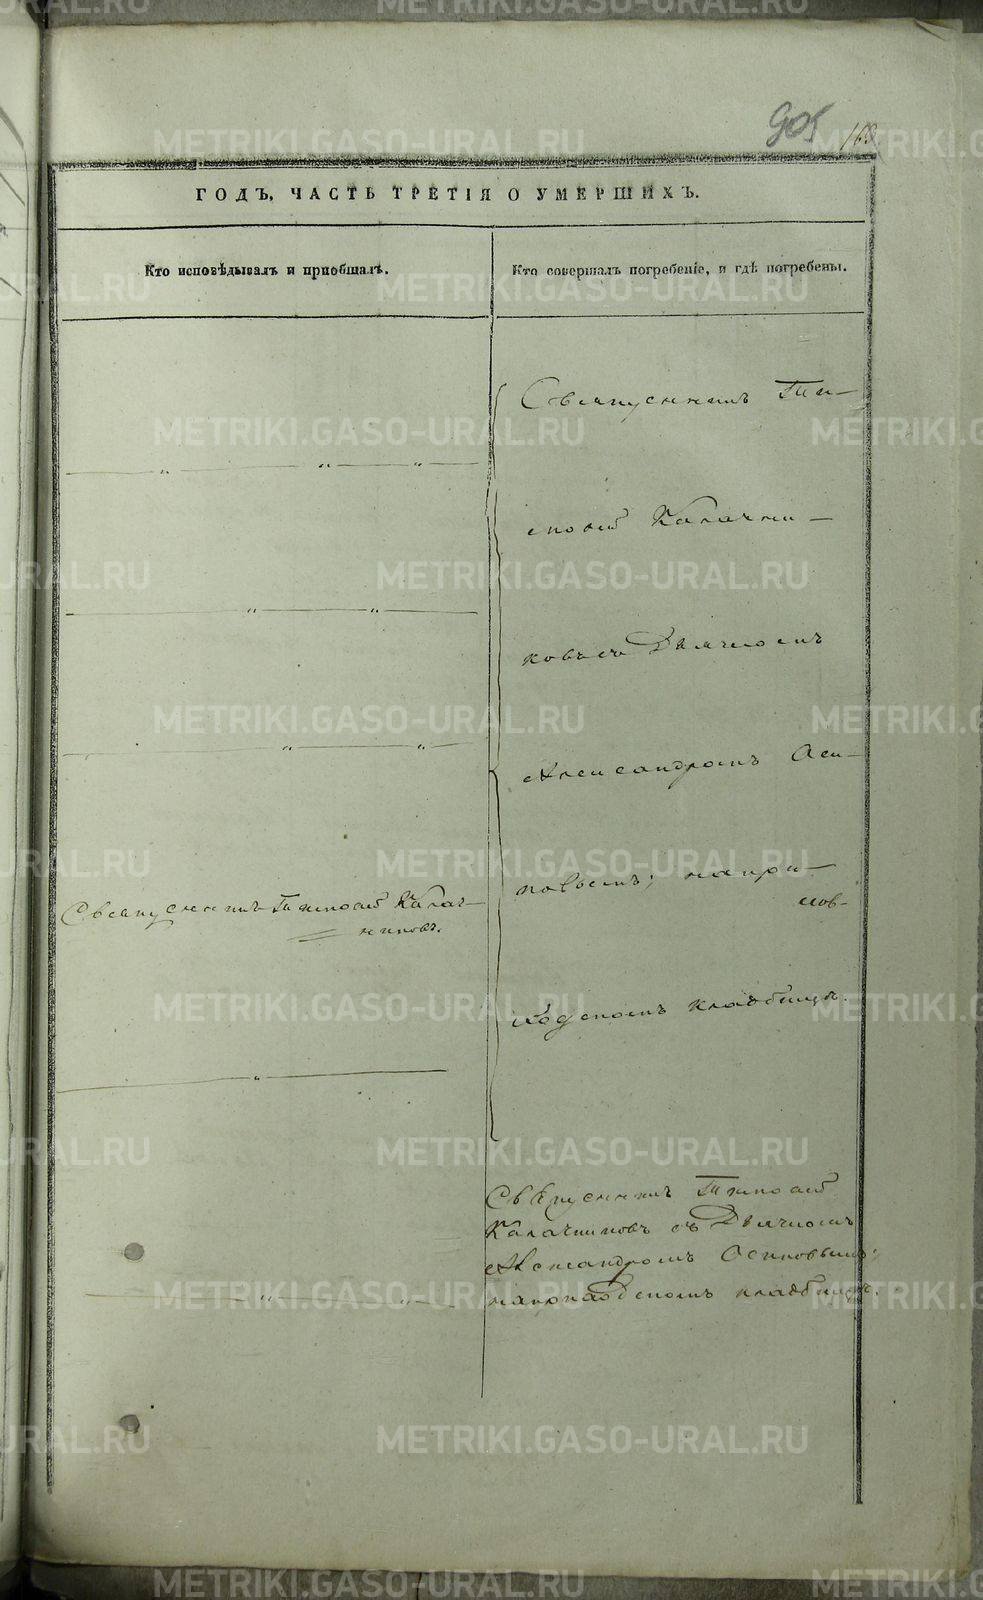 905 168
ГОДЪ, ЧАСТЬ ТРЕТІЯ О УМЕРШИХЪ.
Кто исповѣдывалъ и пріобщалъ.
Кто совершалъ погребеніе, и гдѣ погребены.
Священникъ Ти-
мофей Калачни-
ковъ съ Дьячкомъ
Александромъ Оси-
повымъ; на при-
ход-
скомъ кладбищѣ.
Священникъ Тимофей Калач-
никовъ.
Священникъ Тимофей
Калачниковъ съ Дьячкомъ
Александромъ Осиповымъ;
на приходскомъ кладбищѣ.
METRIKI.GASO-URAL.RU